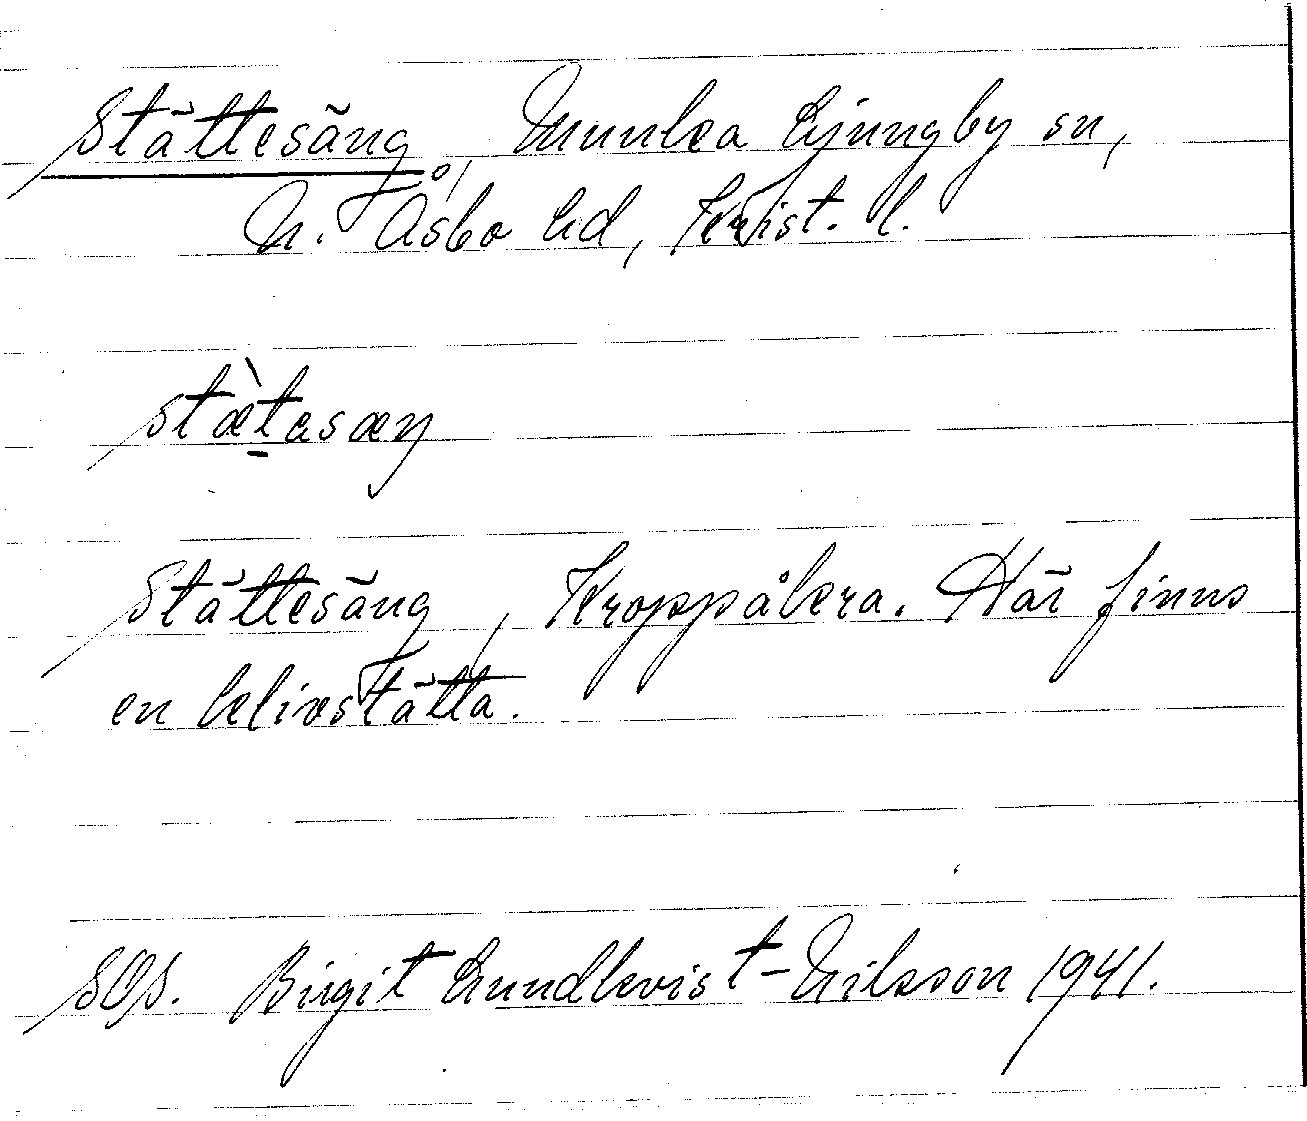 Stättesäng, Munka Ljungby sn,
N. Åsbo hd, Krist. l.
stæ̀tasæŋ
Stättesäng, Kroppåkra. Här finns
en klivstätta.
SOS. Birgit Lundkvist-Nilsson 1941.